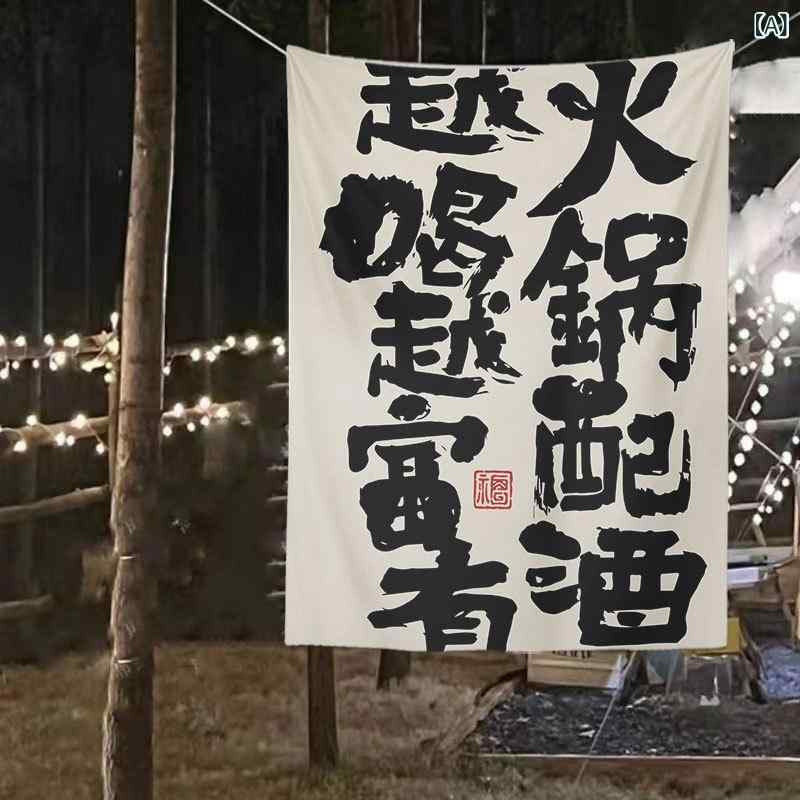 火鍋配酒
越喝越富有
福
【A】